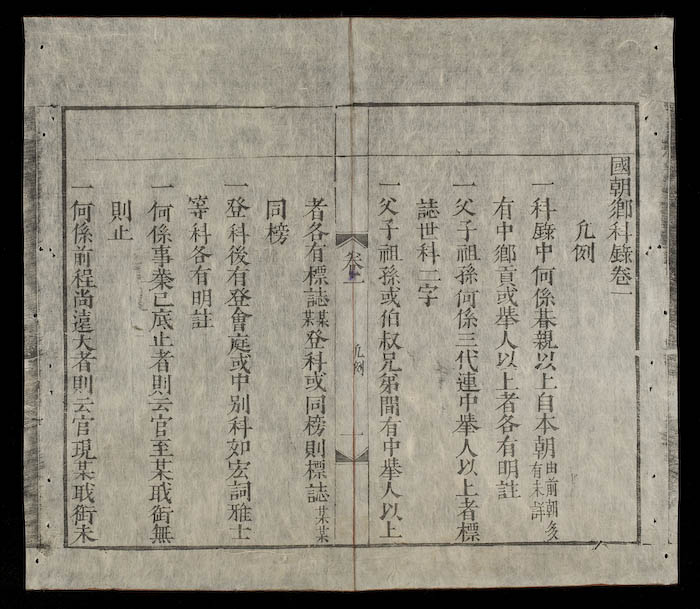 國朝鄉科錄卷一
凢例
一科錄中何係朞親以上自本朝由前朝多有未詳
有中鄉貢或舉人以上者各有明註
一父子祖孫何係三代連中舉人以上者標
誌世科二字
一父子祖孫或伯叔兄弟間有中舉人以上
卷一
凢例
一
者各有標誌某某登科或同榜則標誌某某
同榜
一登科後有登會庭或中別科如宏詞雅士
等科各有明註
一何係事業已底止者則云官至某戢銜無
則止
一何係前程尚遠大者則云官現某戢銜未